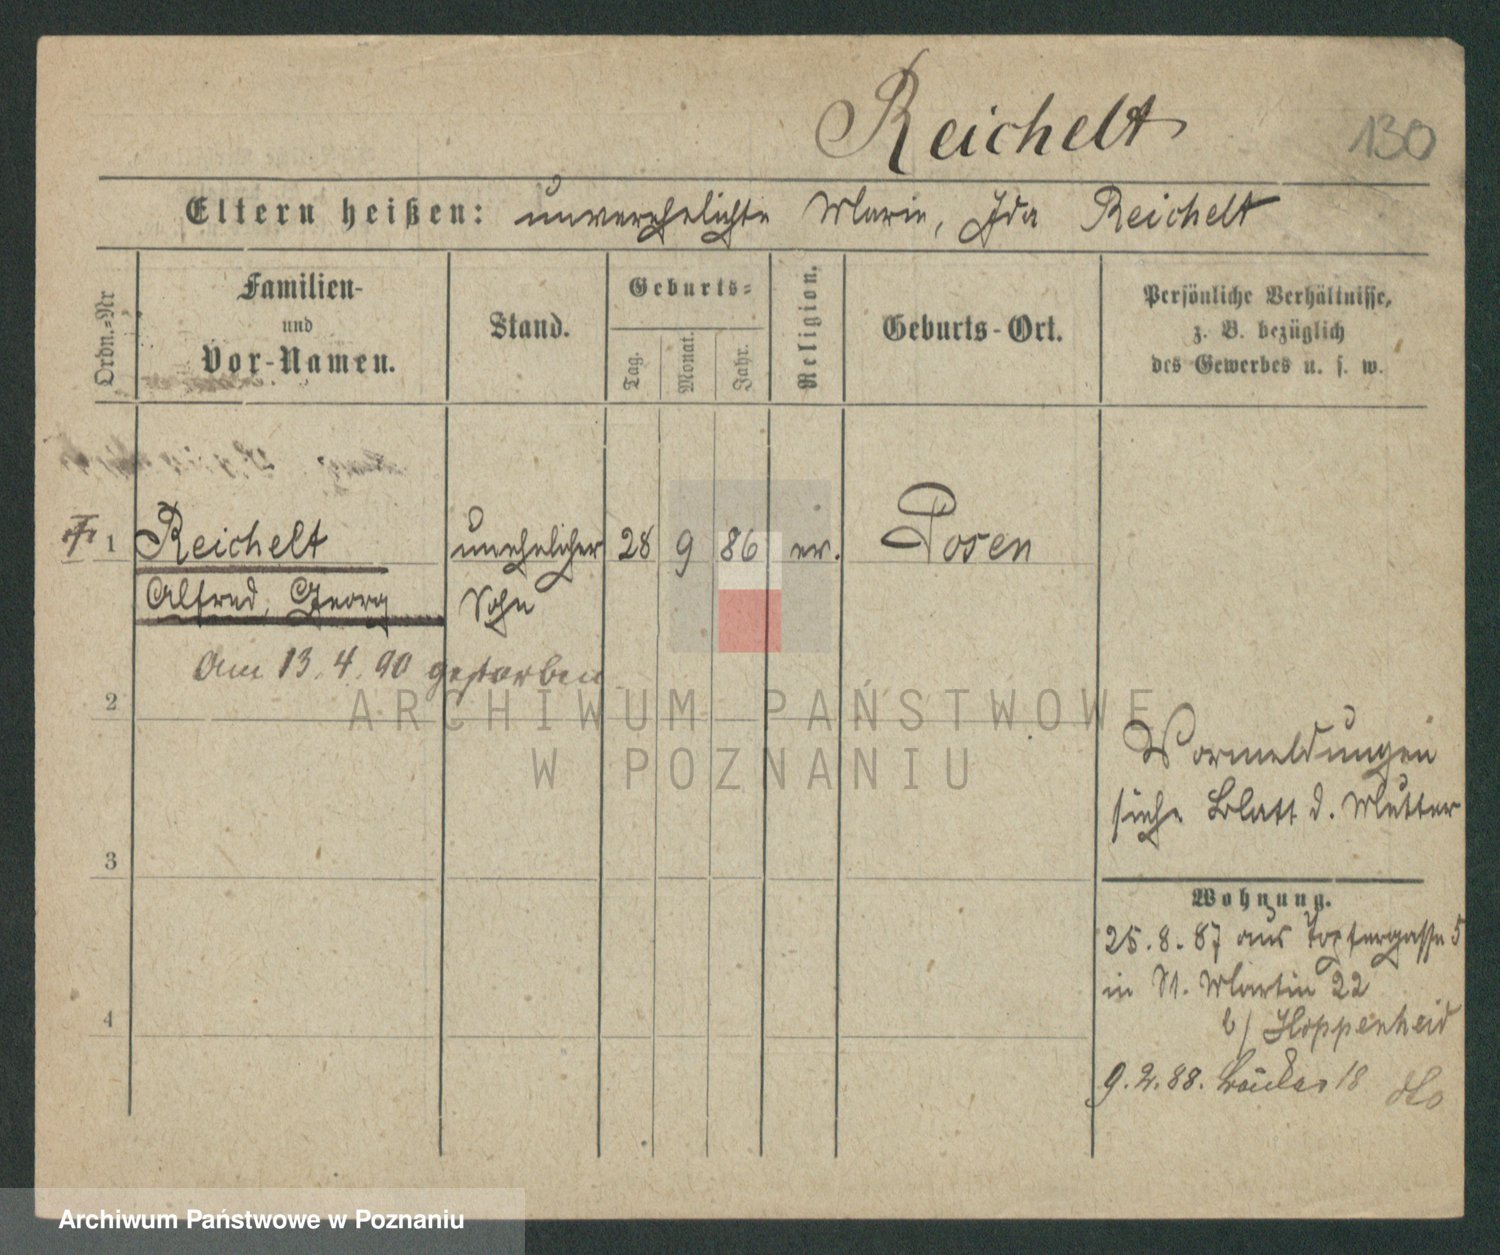 Reichelt
130
Eltern heißen: unverehelichte Marie, Ida Reichelt
Ordn.=Nr
Familien-
und
Vor-Namen.
Stand.
Geburts=
Tag.
Monat.
Jahr.
Religion.
Geburts-Ort.
Persönliche Verhältnisse,
z. B. bezüglich
des Gewerbes u. s. w.
1 Reichelt unehelicher 28 9 86 ev. Posen
Alfred, Georg Sohn
Am 13. 4. 90 gestorben
2
ARCHIWUM PAŃSTWOWE
W POZNANIU
Vormeldungen
siehe Blatt d. Mutter
3
Wohnung.
25. 8. 87 aus Töpfergasse 5
in St. Martin 22
b/ Hoppenheid
4
9. 2. 88. 18
Archiwum Państwowe w Poznaniu